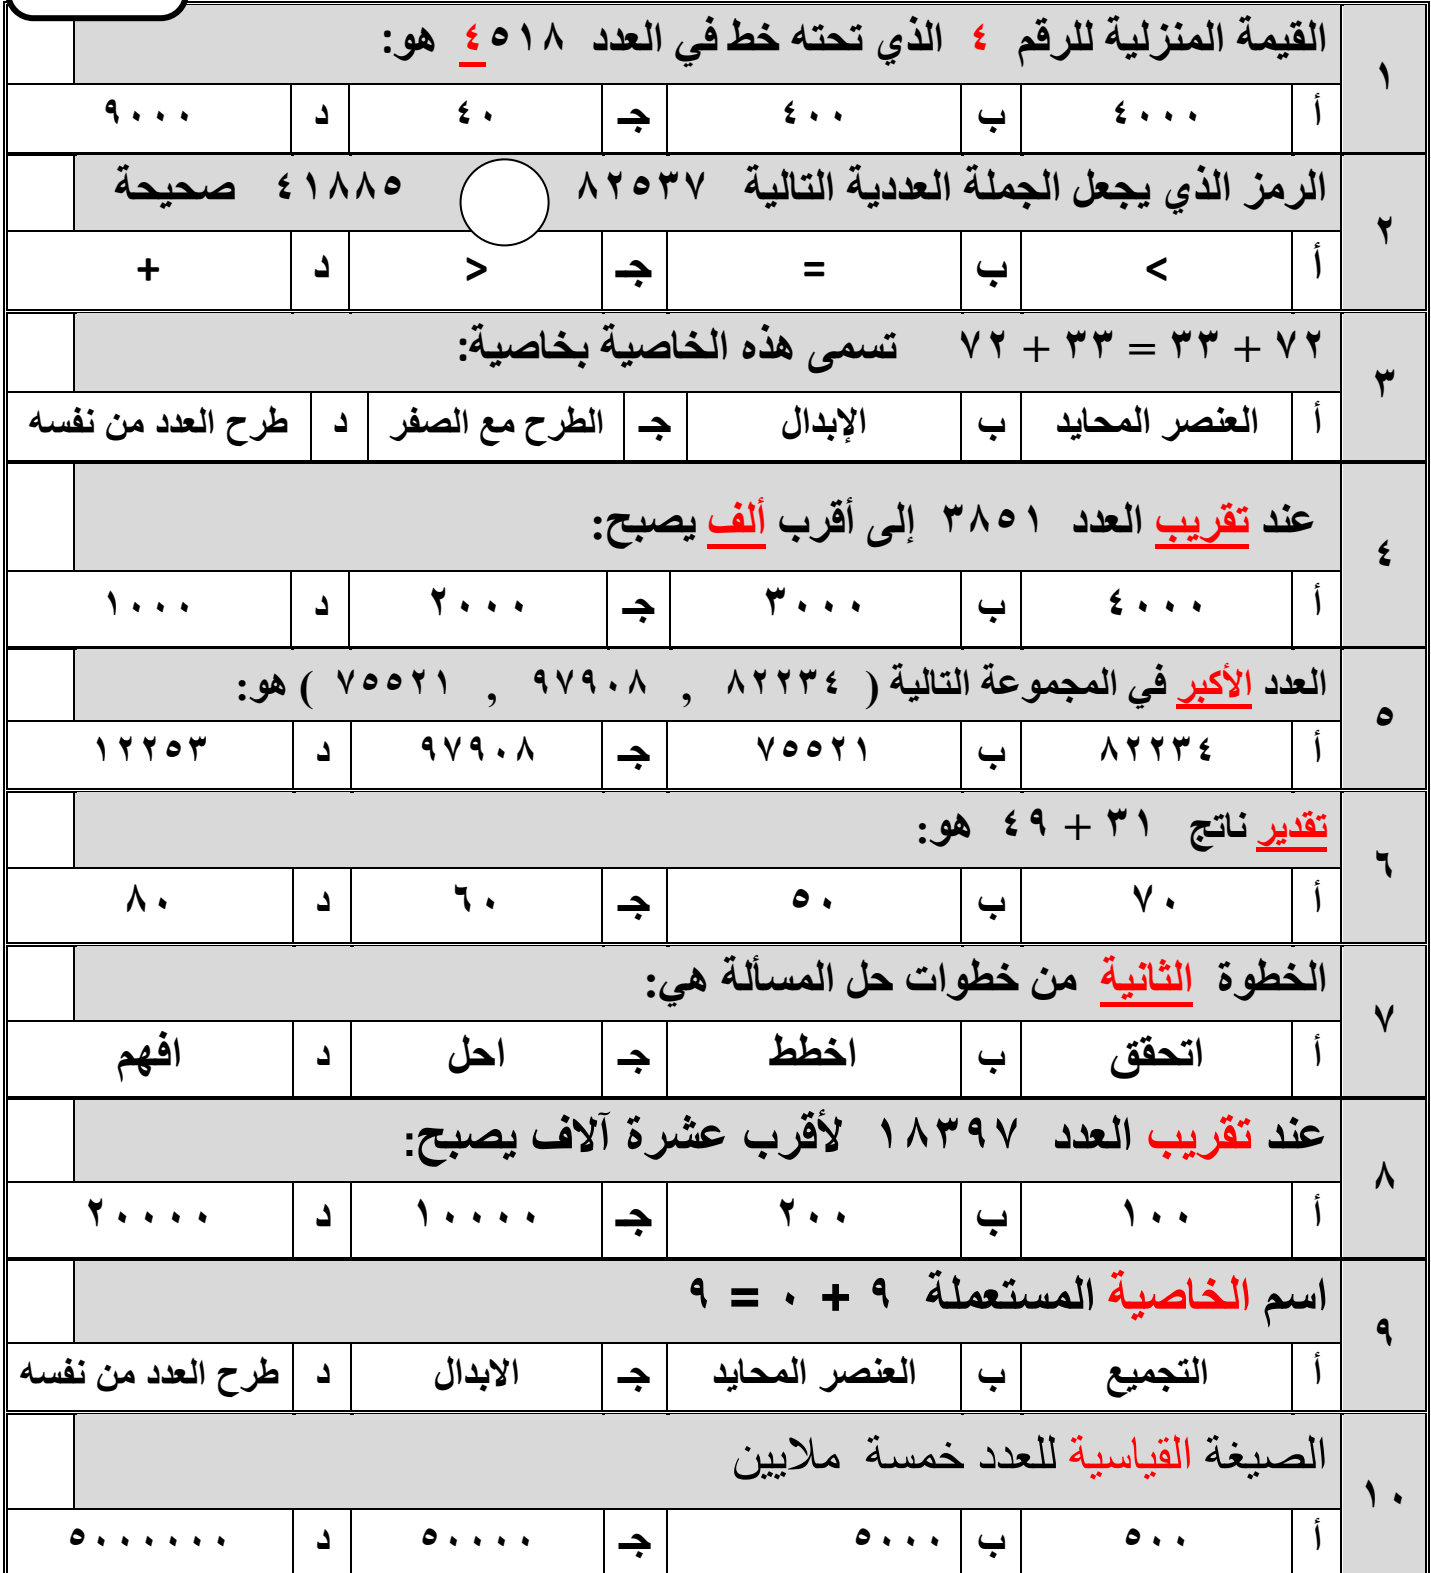 القيمة المنزلية للرقم ٤ الذي تحته خط في العدد ٤٥١٨ هو:
١
أ ٤٠٠٠ ب ٤٠٠ جـ ٤٠ د ٩٠٠٠
الرمز الذي يجعل الجملة العددية التالية ٨٢٥٣٧ ٤١٨٨٥ صحيحة
٢
أ < ب = جـ > د +
٧٢ + ٣٣ = ٣٣ + ٧٢ تسمى هذه الخاصية بخاصية:
٣
أ العنصر المحايد ب الإبدال جـ الطرح مع الصفر د طرح العدد من نفسه
عند تقريب العدد ٣٨٥١ إلى أقرب ألف يصبح:
٤
أ ٤٠٠٠ ب ٣٠٠٠ جـ ٢٠٠٠ د ١٠٠٠
العدد الأكبر في المجموعة التالية ( ٨٢٢٣٤ , ٩٧٩٠٨ , ٧٥٥٢١ ) هو:
٥
أ ٨٢٢٣٤ ب ٧٥٥٢١ جـ ٩٧٩٠٨ د ١٢٢٥٣
تقدير ناتج ٣١ + ٤٩ هو:
٦
أ ٧٠ ب ٥٠ جـ ٦٠ د ٨٠
الخطوة الثانية من خطوات حل المسألة هي:
٧
أ اتحقق ب اخطط جـ احل د افهم
عند تقريب العدد ١٨٣٩٧ لأقرب عشرة آلاف يصبح:
٨
أ ١٠٠ ب ٢٠٠ جـ ١٠٠٠٠ د ٢٠٠٠٠
اسم الخاصية المستعملة ٩ + ٠ = ٩
٩
أ التجميع ب العنصر المحايد جـ الابدال د طرح العدد من نفسه
الصيغة القياسية للعدد خمسة ملايين
١٠
أ ٥٠٠ ب ٥٠٠٠ جـ ٥٠٠٠٠ د ٥٠٠٠٠٠٠